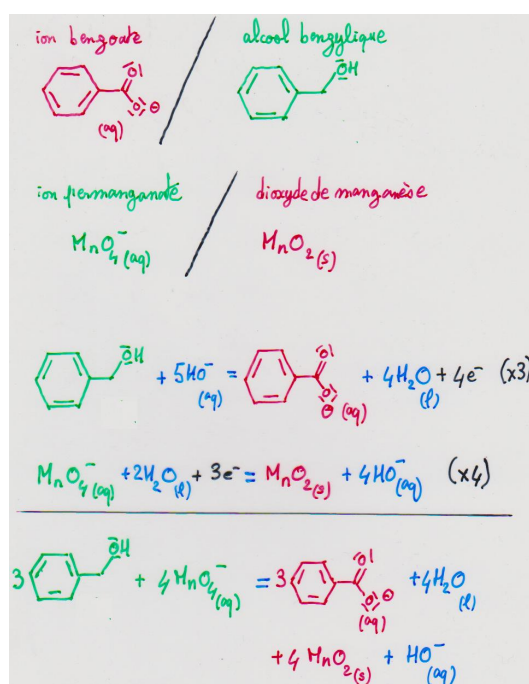 ion benzoate / alcool benzylique
O O ⊖ (aq) OH
ion permanganate / dioxyde de manganèse
MnO4⁻(aq) / MnO2(s)
OH + 5HO⁻(aq) = O O ⊖ (aq) + 4H2O(l) + 4e⁻ (x3)
MnO4⁻(aq) + 2H2O(l) + 3e⁻ = MnO2(s) + 4HO⁻(aq) (x4)
3 OH + 4MnO4⁻(aq) = 3 O O ⊖ (aq) + 4H2O(l)
+ 4 MnO2(s) + HO⁻(aq)